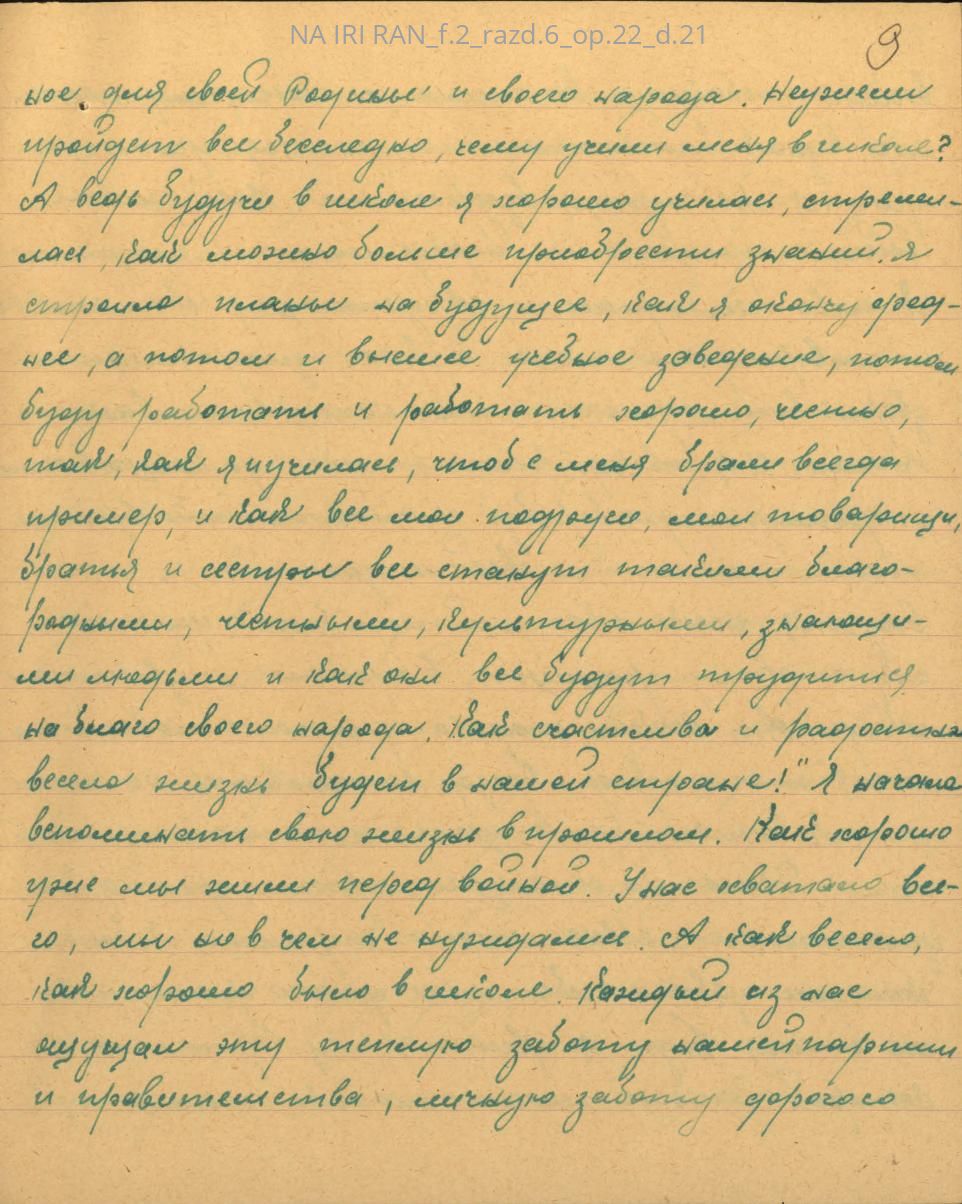 NA IRI RAN_f.2_razd.6_op.22_d.21
9
ное для своей Родины и своего народа. Неужели
пройдет все бесследно, чему учили меня в школе?
А ведь будучи в школе я хорошо училась, стреми-
лась, как можно больше приобрести знаний. Я
строила планы на будущее, как я окончу сред-
нее, а потом и высшее учебное заведение, потом
буду работать и работать хорошо, честно,
так, как я и училась, чтоб с меня брали всегда
пример, и как все мои подруги, мои товарищи,
братья и сестры все станут такими благо-
родными, честными, культурными, знающи-
ми людьми и как они все будут трудиться
на благо своего народа. Как счастлива и радостна
весело жизнь будет в нашей стране!" Я начала
вспоминать свою жизнь в прошлом. Как хорошо
уже мы жили перед войной. У нас хватало все-
го, мы но в чем не нуждались. А как весело,
как хорошо было в школе. Каждый из нас
ощущал эту теплую заботу нашей партии
и правительства, личную заботу дорогого